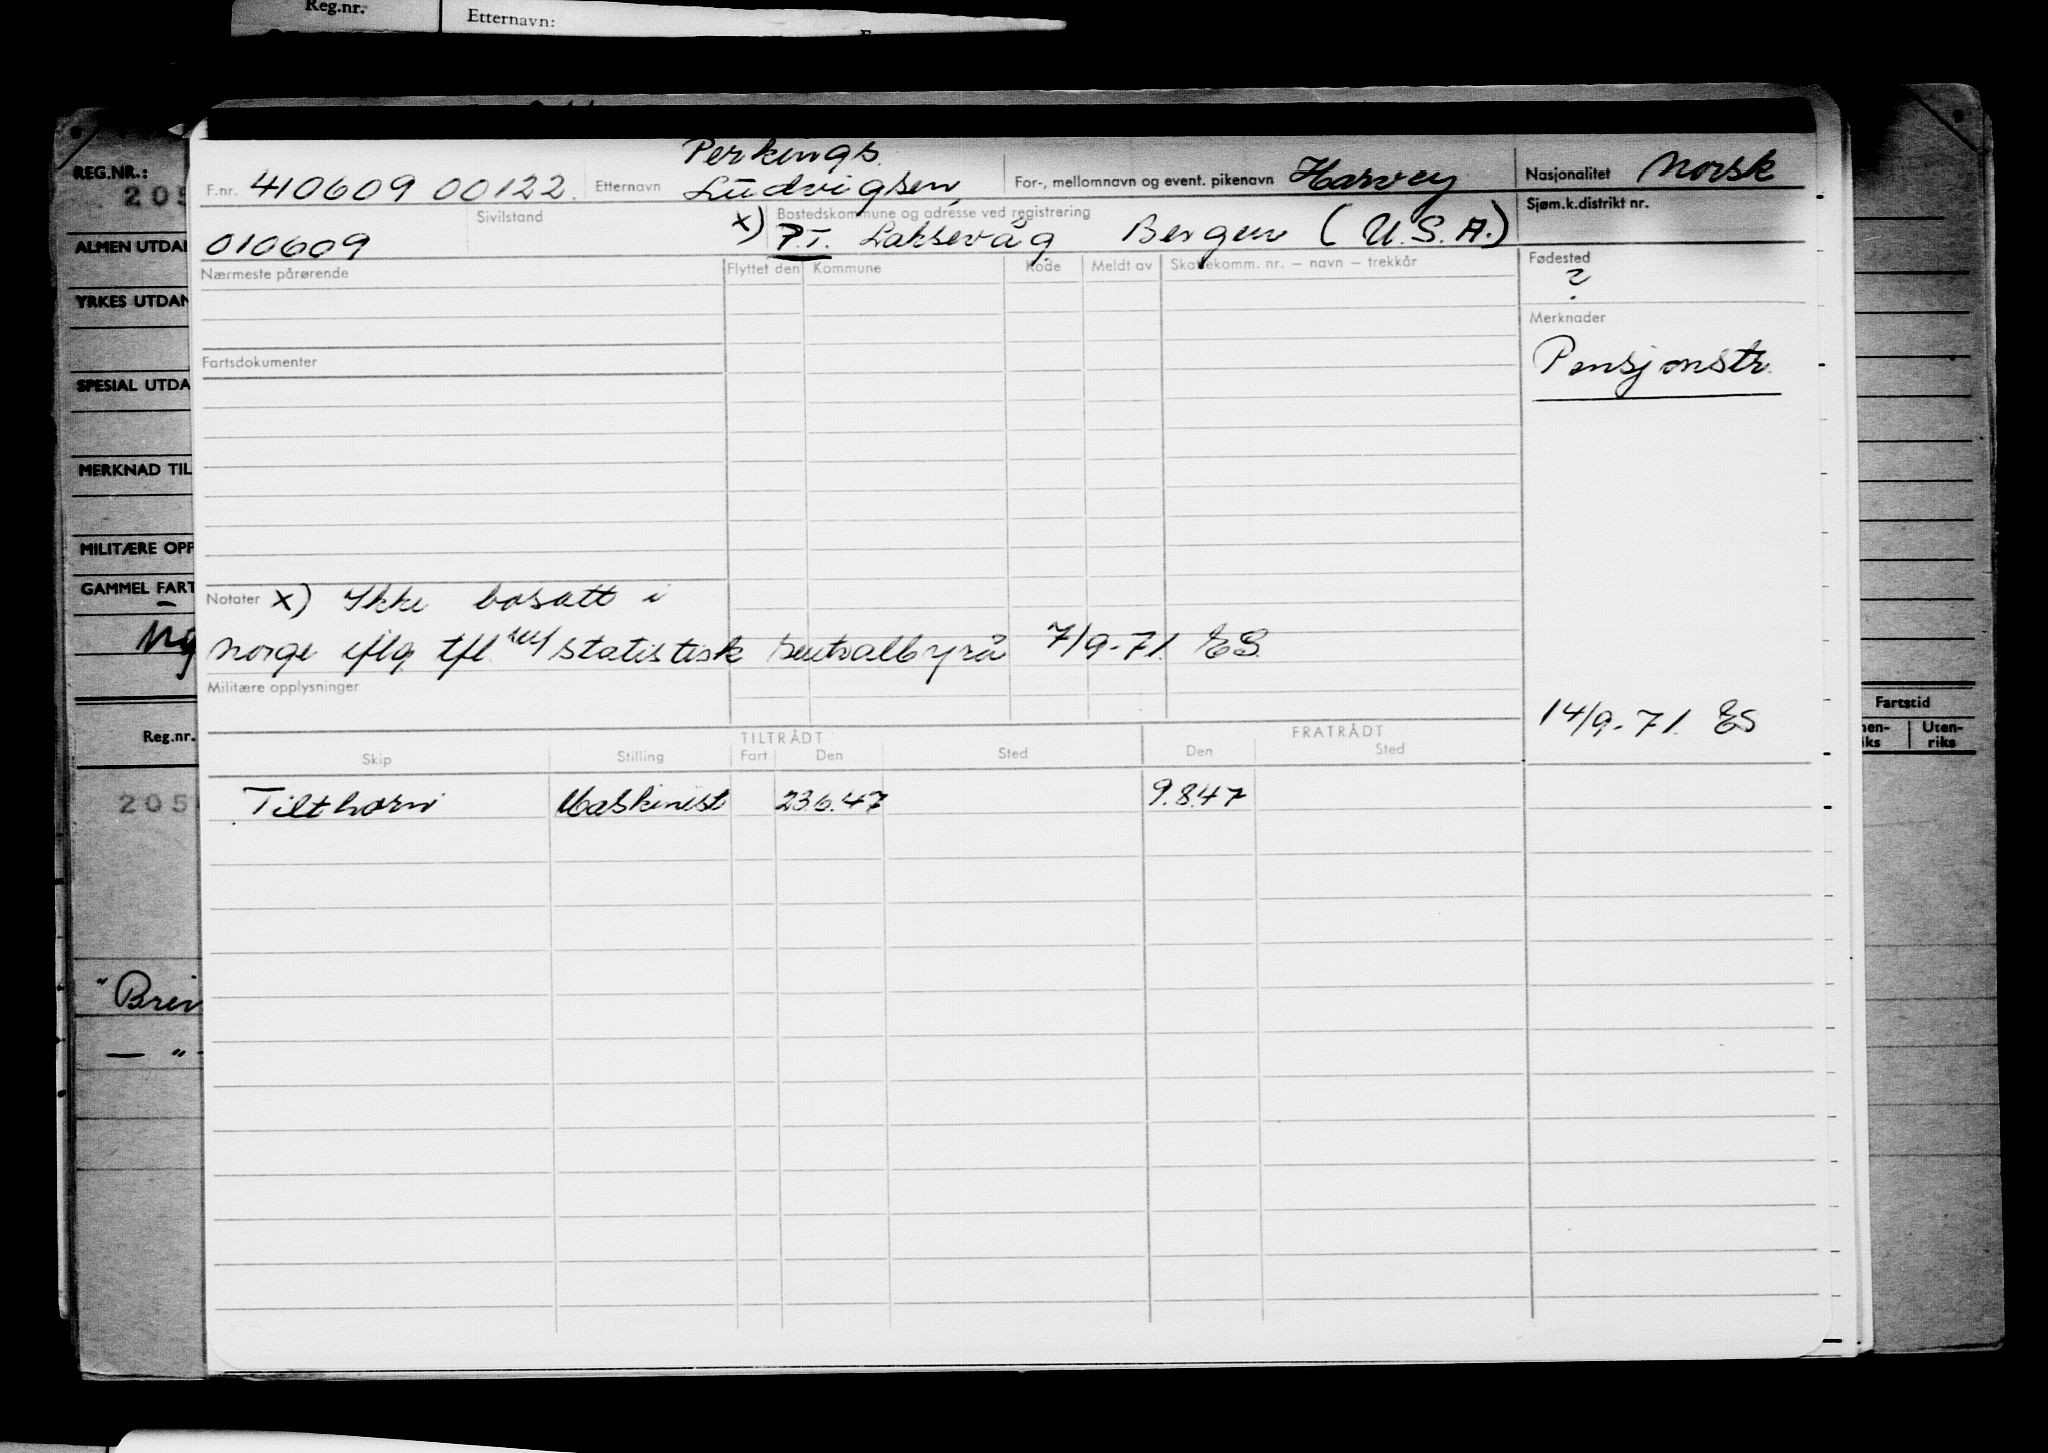 Reg.nr.
Etternavn:
REG.NR.:
205
ALMEN UTDA
YRKES UTDAN
SPESIAL UTDA
MERKNAD TIL
MILITÆRE OPP
GAMMEL FART
Reg.nr.
205
"Brin
— " -
Perkings
F.nr. 410609 00122. Etternavn Ludvigsen, For-, mellomnavn og event. pikenavn Harvey Nasjonalitet Norsk
010609 Sivilstand x) Bostedskommune og adresse ved registrering Sjøm.k.distrikt nr.
P.T. Laksevåg Bergen (U.S.A.)
Nærmeste pårørende Flyttet den Kommune Kode Meldt av Skattekomm. nr. – navn – trekkår Fødested
?
Merknader
Fartsdokumenter
Pensjonstr.
Notater x) Ikke bosatt i
Norge iflg tfl. statistisk sentralbyrå 7/9-71. ES.
Militære opplysninger
14/9-71. ES
TILTRÅDT FRATRÅDT
Skip Stilling Fart Den Sted Den Sted
Tilthorn Maskinist 23.6.47 9.8.47
Fartstid
nen-
iks
Uten-
riks